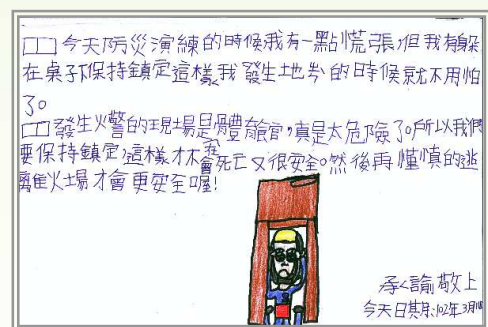 □□今天防災演練的時候我有一點慌張,但我有躲
在桌子下保持鎮定這樣我發生地岑的時候就不用怕
了。
□□發生火警的現場是體館,真是太危險了。所以我們
要保持鎮定,這樣才不會死亡又很安全。然後再懂慎的逃
離火場才會更安全喔!
承諭敬上
今天日期:102年3月